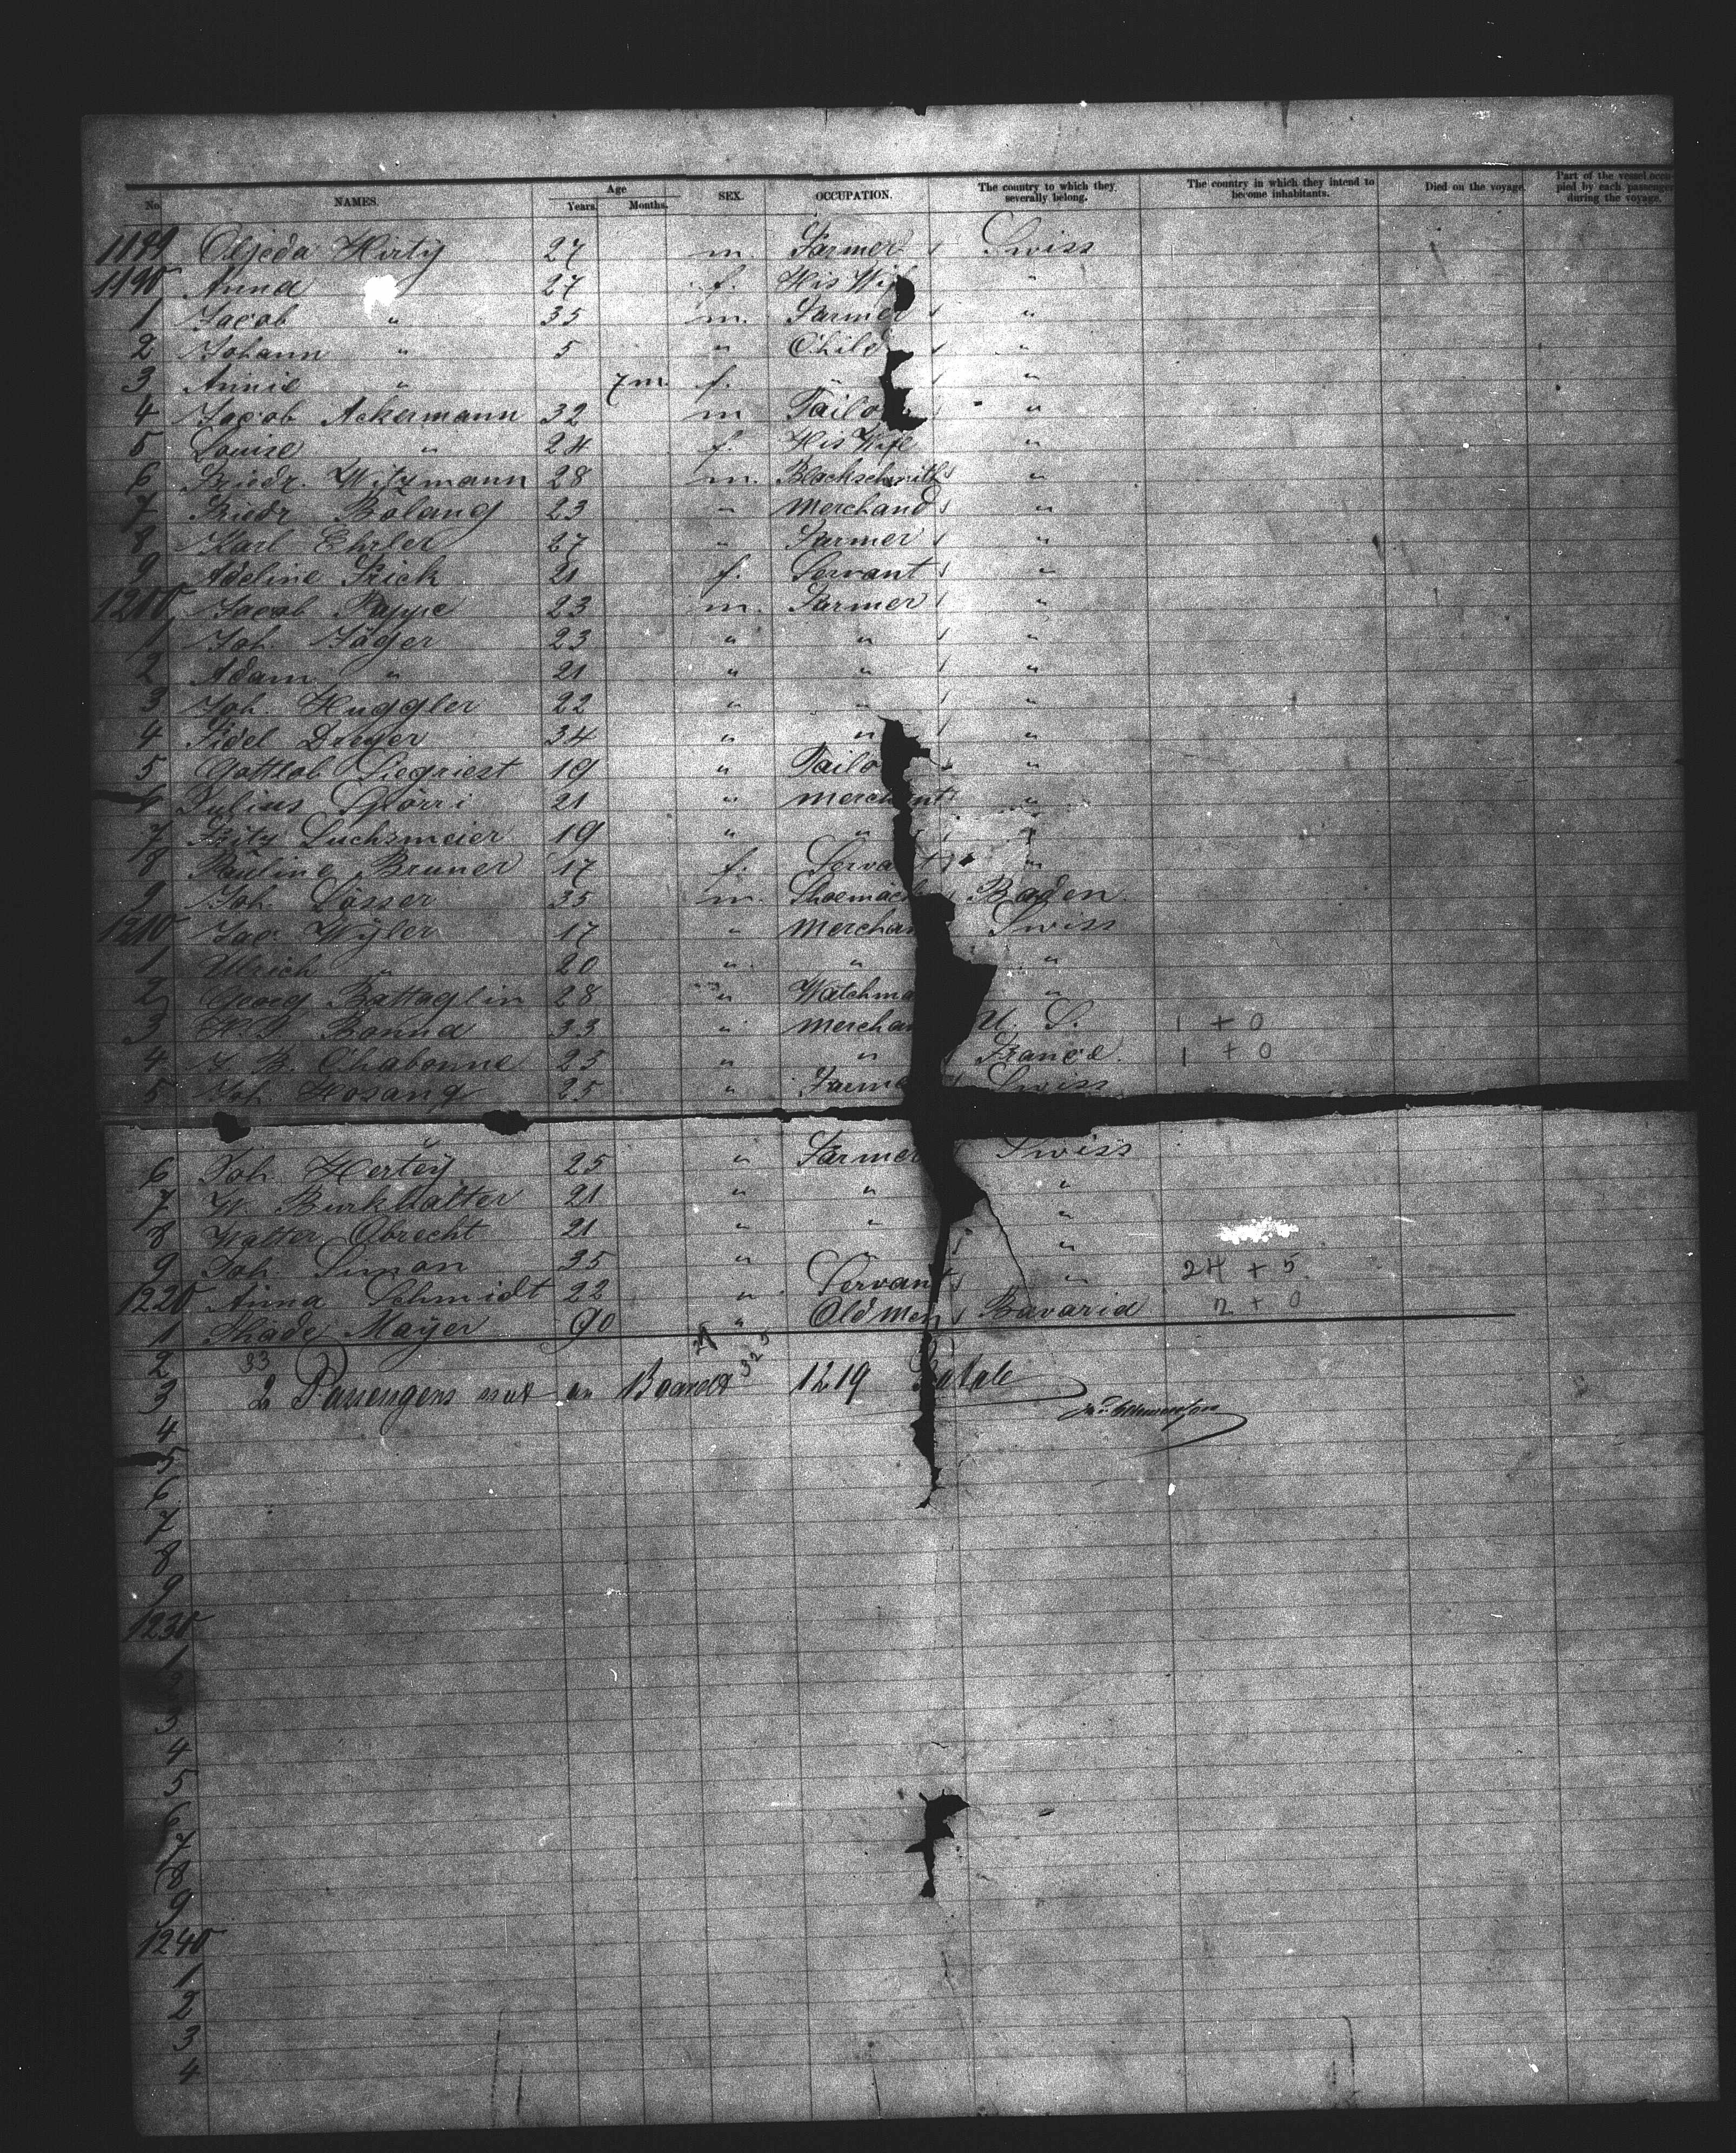 No. NAMES. Age Years. Months. SEX. OCCUPATION. The country to which they severally belong. The country in which they intend to become inhabitants. Died on the voyage. Part of the vessel occupied by each passenger during the voyage.
1189 Hirty 27 m. Farmer Swiss
1190 Anna 27 f. His Wife "
1 Jacob " 35 m. Farmer "
2 Johann " 5 " Child "
3 Annie " 7 m. f. " "
4 Jacob Ackermann 32 m Tailor "
5 Louise " 24 f. His Wife "
6 Friedr. Witzmann 28 m. Blackschmith "
7 Friedr Boland 23 " Merchand "
8 Karl Ehrler 27 " Farmer "
9 Adeline Frick 21 f. Servant "
1200 Jacob Pappe 23 m. Farmer "
1 Joh. Jäger 23 " " "
2 Adam " 21 " " "
3 Joh. Huggler 22 " " "
4 Fidel Dreyer 34 " " "
5 Gottlob Siegriest 19 " Tailo "
6 Julius Spörri 21 " Merchant "
7 Fritz Luchsmeier 19 " " "
8 Pauline Bruner 17 f. Servant "
9 Joh. Lösser 35 m. Shoemack Baden.
1210 Jac. Wyler 17 " Merchan Swiss
1 Ulrich " 20 " " "
2 Georg Battaglin 28 " Watchma "
3 Bonna 33 " Merchan U. S. 1 + 0
4 J. B. Chabonne 25 " " France. 1 + 0
5 Joh. Hosang 25 " Farme Swiss
6 Joh. Hertey 25 " Farmer Swiss
7 W. Burkhalter 21 " " "
8 Walter Obrecht 21 " " "
9 Joh. Simon 35 " " "
1220 Anna Schmidt 22 " Servant " 24 + 5.
1 Mayer 90 " Old Men Bavaria 2 + 0
2 33 325
3 2 Passengers not on Boardt 1219 Totale
4
5
6
7
8
9
1230
1
2
3
4
5
6
7
8
9
1240
1
2
3
4